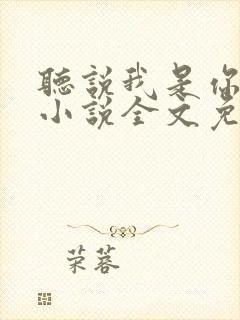 聽說我是你
小說全文免
荣蓉